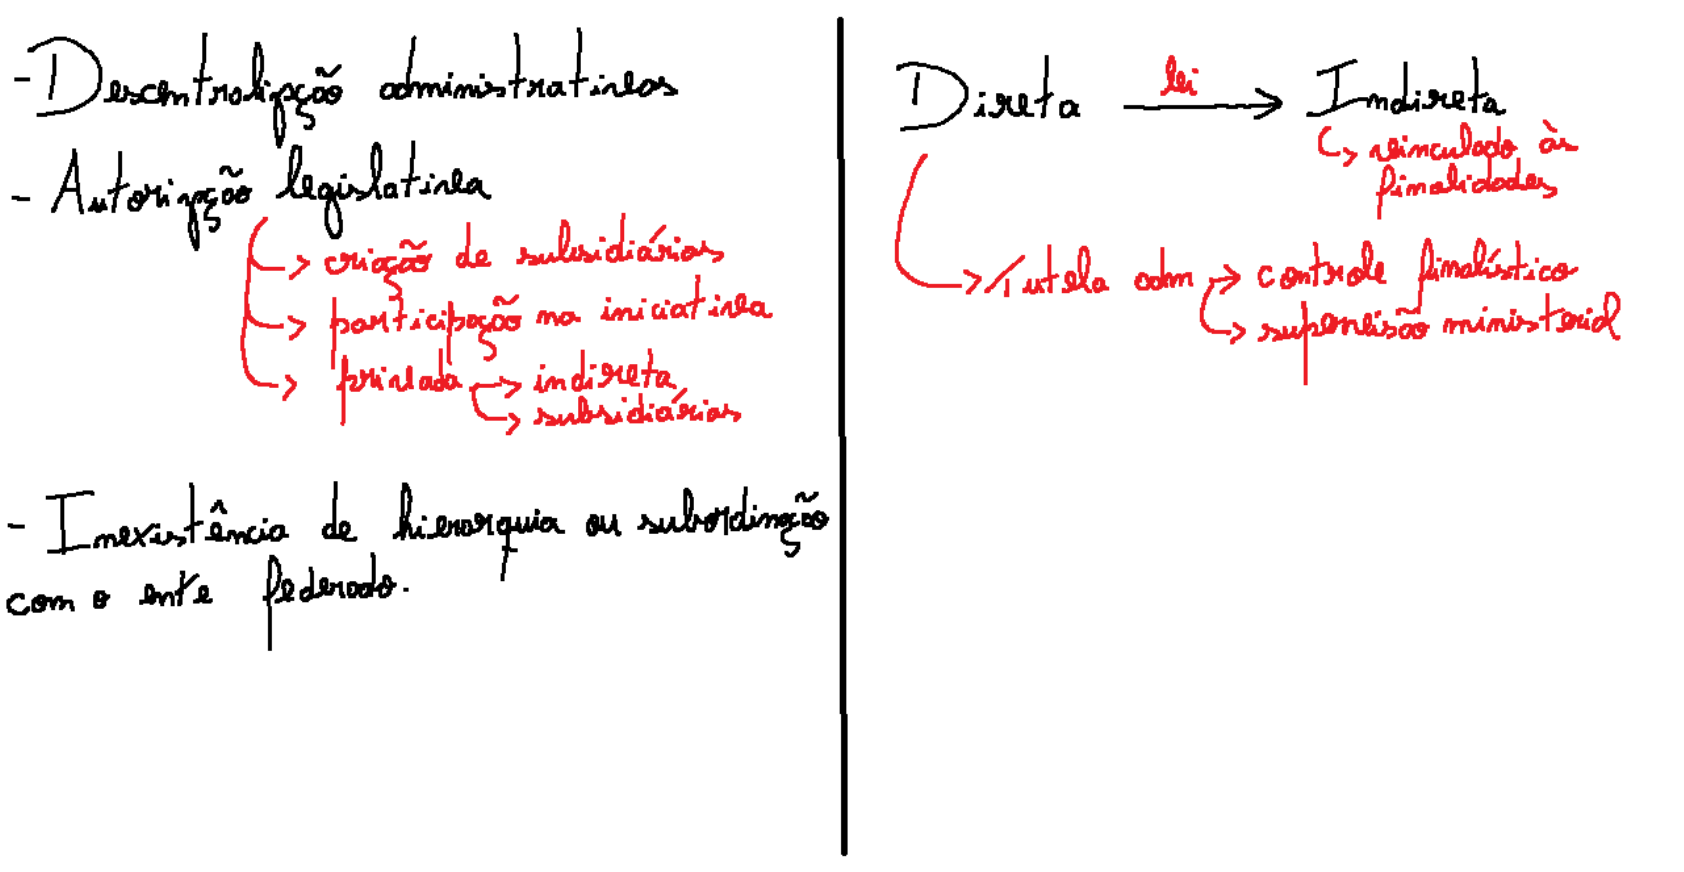 - Descentralização administrativas
- Autorização legislativa
↳ criação de subsidiárias
↳ participação na iniciativa
↳ privada ↳ indireta
↳ subsidiárias
- Inexistência de hierarquia ou subordinação
com o ente federado.
Direta lei → Indireta
↳ vinculado às
finalidades
↳ Tutela adm → controle finalístico
↳ supervisão ministerial